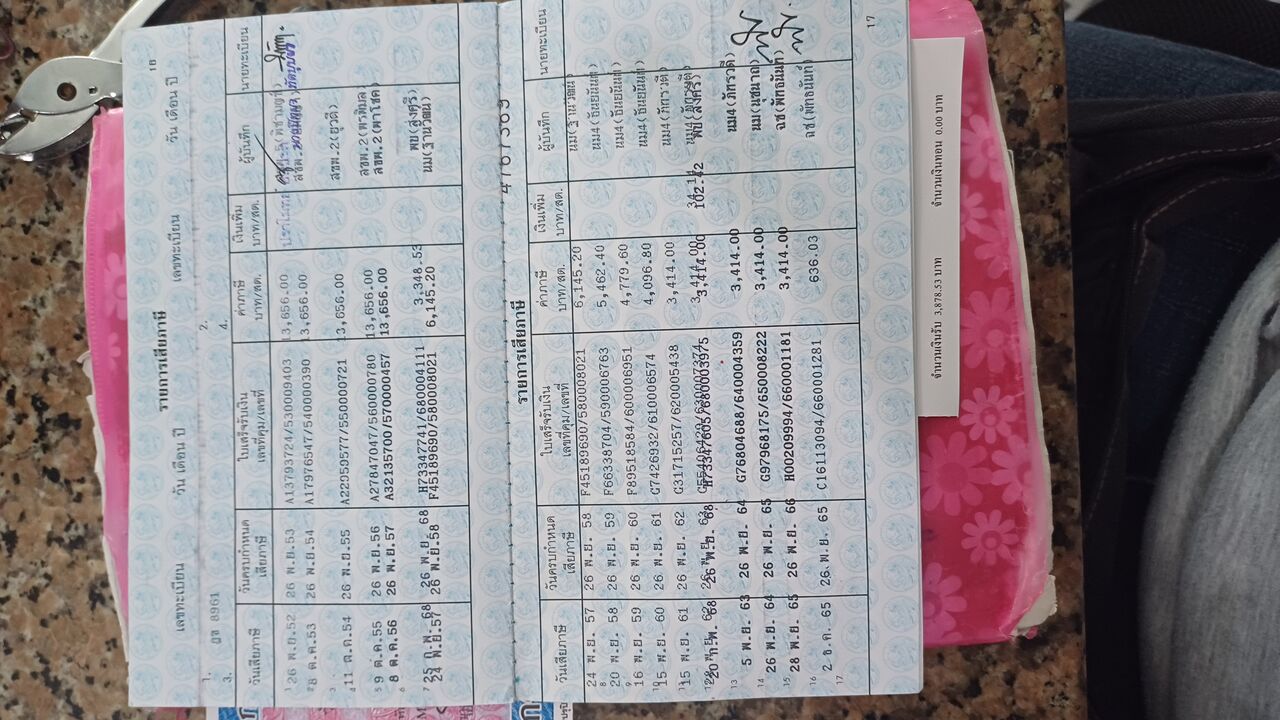 16
รายการเสียภาษี
เลขทะเบียน วัน เดือน ปี เลขทะเบียน วัน เดือน ปี
1. 8961 2.
3. 4.
วันเสียภาษี วันครบกำหนดเสียภาษี ใบเสร็จรับเงิน เลขที่คุม/เลขที่ ค่าภาษี บาท/สต. เงินเพิ่ม บาท/สต. ผู้บันทึก นายทะเบียน
1 26 พ.ย.52 26 พ.ย.53 A13793724/530009403 13,656.00
8 ต.ค.53 26 พ.ย.54 A17976547/540000390 13,656.00
11 ต.ค.54 26 พ.ย.55 A22959577/550000721 13,656.00 สขพ.2(ยุวดี)
9 ต.ค.55 26 พ.ย.56 A27847047/560000780 13,656.00 สขพ.2(พรพิมล)
8 ต.ค.56 26 พ.ย.57 A32135700/570000457 13,656.00 สขพ.2(พาโชค)
25 ก.พ. 68 26 พ.ย. 68 H73347741/680004111 3,348.53
24 พ.ย.57 26 พ.ย.58 F45189690/580008021 6,145.20 นม(ฐานวฒน์)
รายการเสียภาษี 41671363
วันเสียภาษี วันครบกำหนดเสียภาษี ใบเสร็จรับเงิน เลขที่คุม/เลขที่ ค่าภาษี บาท/สต. เงินเพิ่ม บาท/สต. ผู้บันทึก นายทะเบียน
24 พ.ย. 57 26 พ.ย. 58 F45189690/580008021 6,145.20 นม(ฐานวฒน์)
20 พ.ย. 58 26 พ.ย. 59 F66338704/590006763 5,462.40 นม4(ธันยนันท์)
16 พ.ย. 59 26 พ.ย. 60 F89518584/600006951 4,779.60 นม4(ธันยนันท์)
15 พ.ย. 60 26 พ.ย. 61 G7426932/610006574 4,096.80 นม4(ธันยนันท์)
15 พ.ย. 61 26 พ.ย. 62 G31715257/620005438 3,414.00 นม4(ภัทรวดี)
26 พ.ย. 63 3,414.00 34.14 นม4(ภัทรวดี)
20 ก.พ. 68 26 พ.ย. 68 H73347605/680003975 3,414.00 102.42
13 5 พ.ย. 63 26 พ.ย. 64 G76804688/640004359 3,414.00 นม4(ภัทรวดี)
14 26 พ.ย. 64 26 พ.ย. 65 G97968175/650008222 3,414.00 นม(นุชนาถ)
15 28 พ.ย. 65 26 พ.ย. 66 H00209994/660001181 3,414.00 ฉช(พัทธนันท์)
16 2 ธ.ค. 65 26 พ.ย. 65 C16113094/660001281 636.03 ฉช(พัทธนันท์)
17
17
จำนวนเงินรับ 3,878.53 บาท จำนวนเงินทอน 0.00 บาท